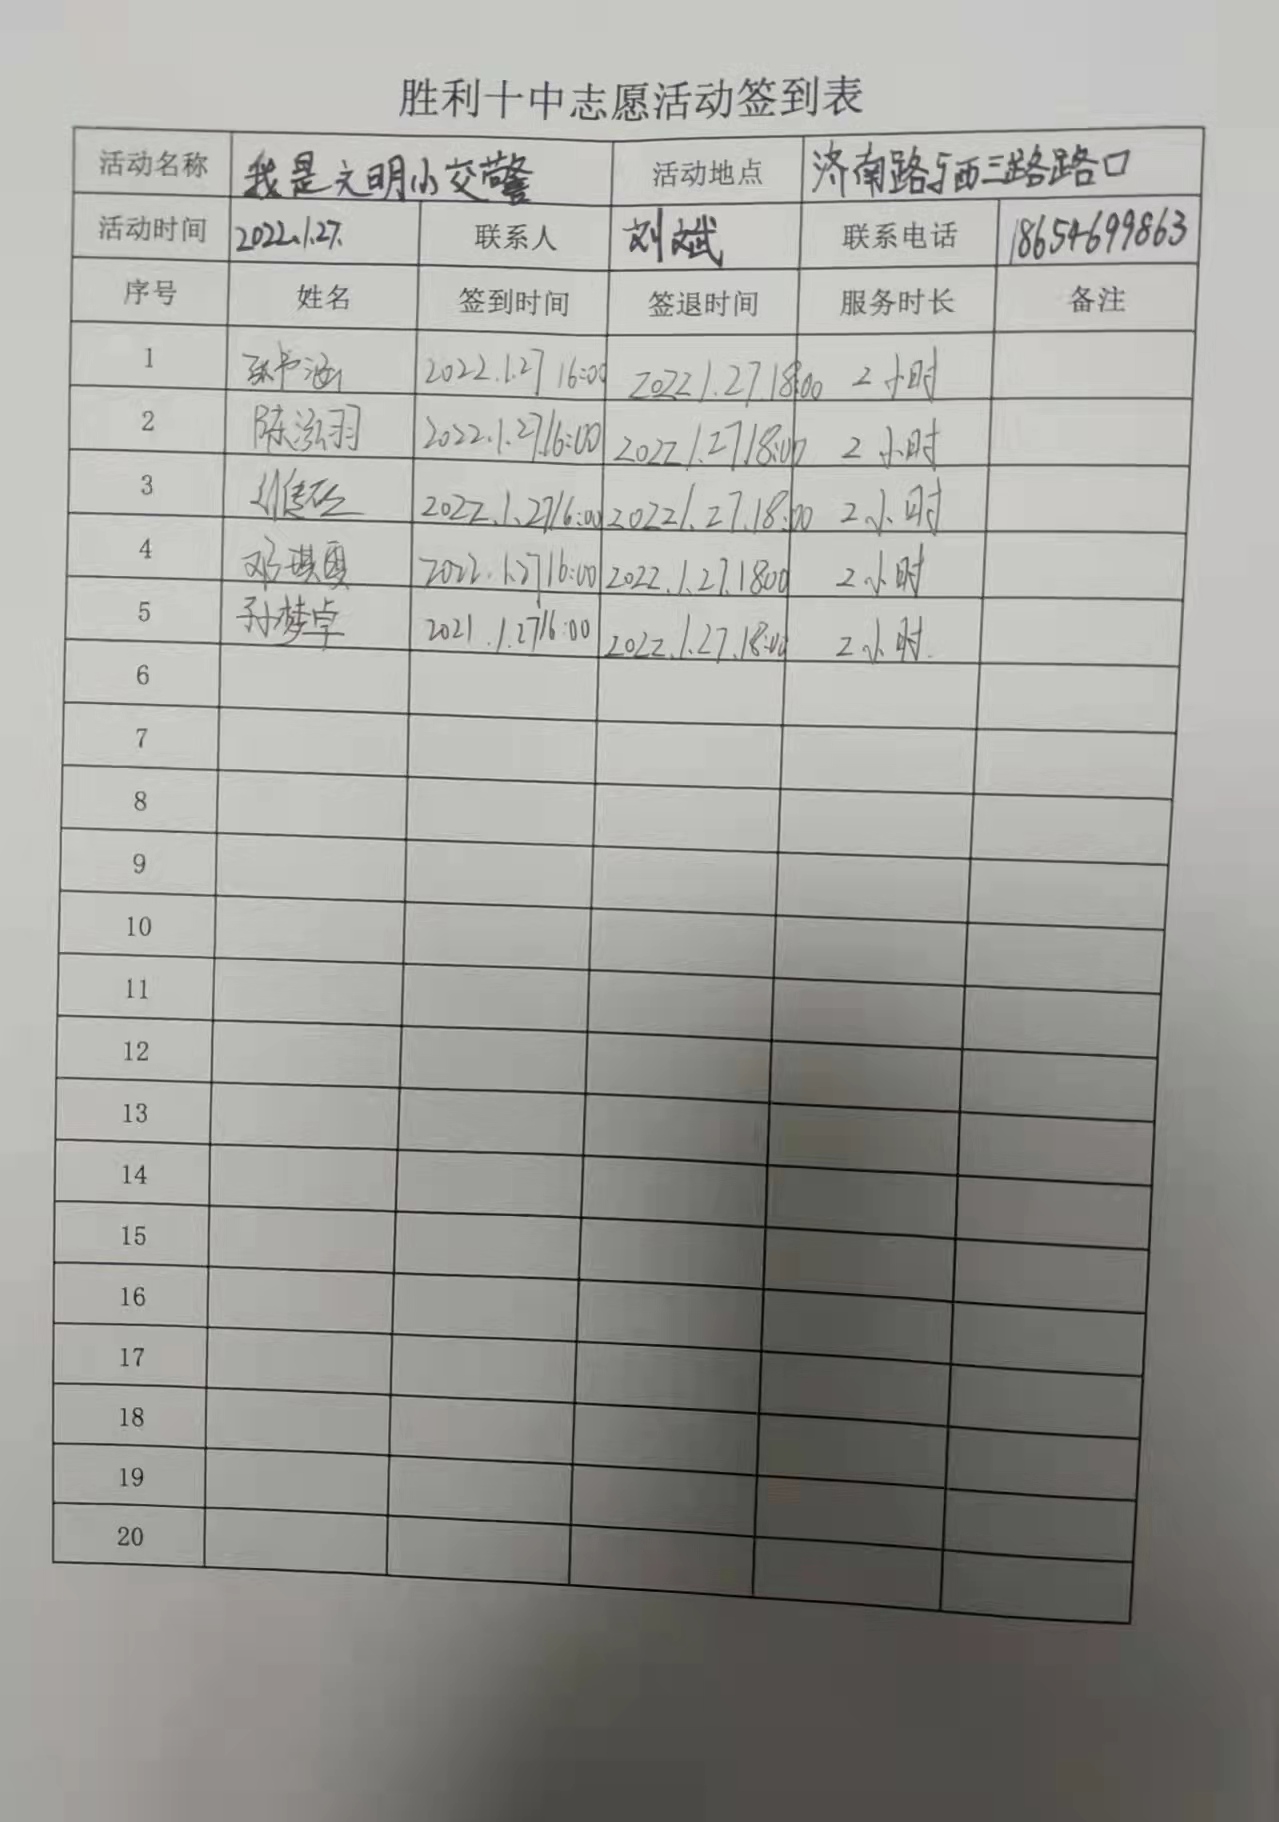 胜利十中志愿活动签到表
活动名称 我是文明小交警 活动地点 济南路与西三路路口
活动时间 2022.1.27. 联系人 刘斌 联系电话 18654699863
序号 姓名 签到时间 签退时间 服务时长 备注
1 2022.1.27 16:00 2022.1.27.18:00 2小时
2 陈泓羽 2022.1.27.16:00 2022.1.27.18:00 2小时
3 2022.1.27 16:00 2022.1.27.18:00 2小时
4 邓琪 2022.1.27 16:00 2022.1.27.1800 2小时
5 孙梦卓 2021.1.27 16:00 2022.1.27.18:00 2小时.
6
7
8
9
10
11
12
13
14
15
16
17
18
19
20